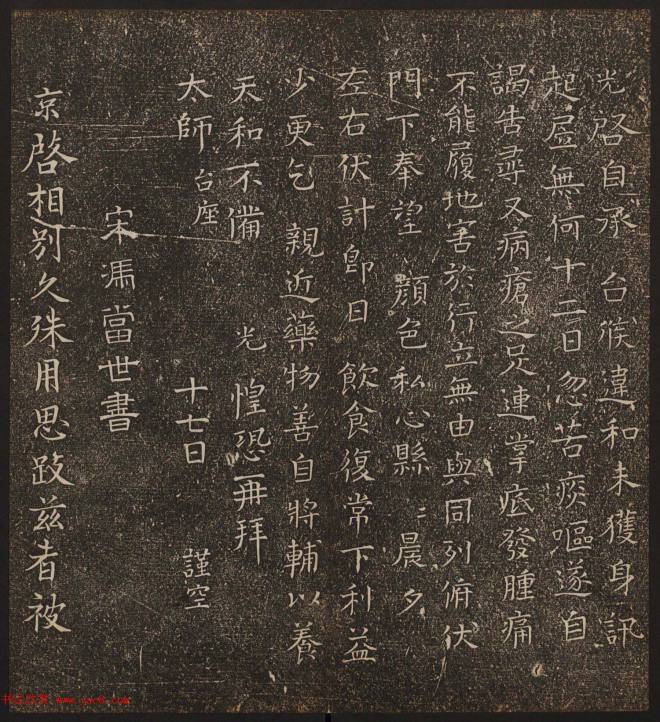 光啓自承 台候違和未獲身訊
起居無何十二日忽苦痰嘔遂自
謁告尋又病瘡之足連掌底發腫痛
不能履地害於行立無由與同列俯伏
門下奉望 顏色私心縣〻晨夕
左右伏計即日 飲食復常下利益
少更乞 親近藥物善自將輔以養
天和不備 光 惶恐再拜
太師 台座 十七日 謹空
宋馮當世書
京啓相別久殊用思跂茲者被